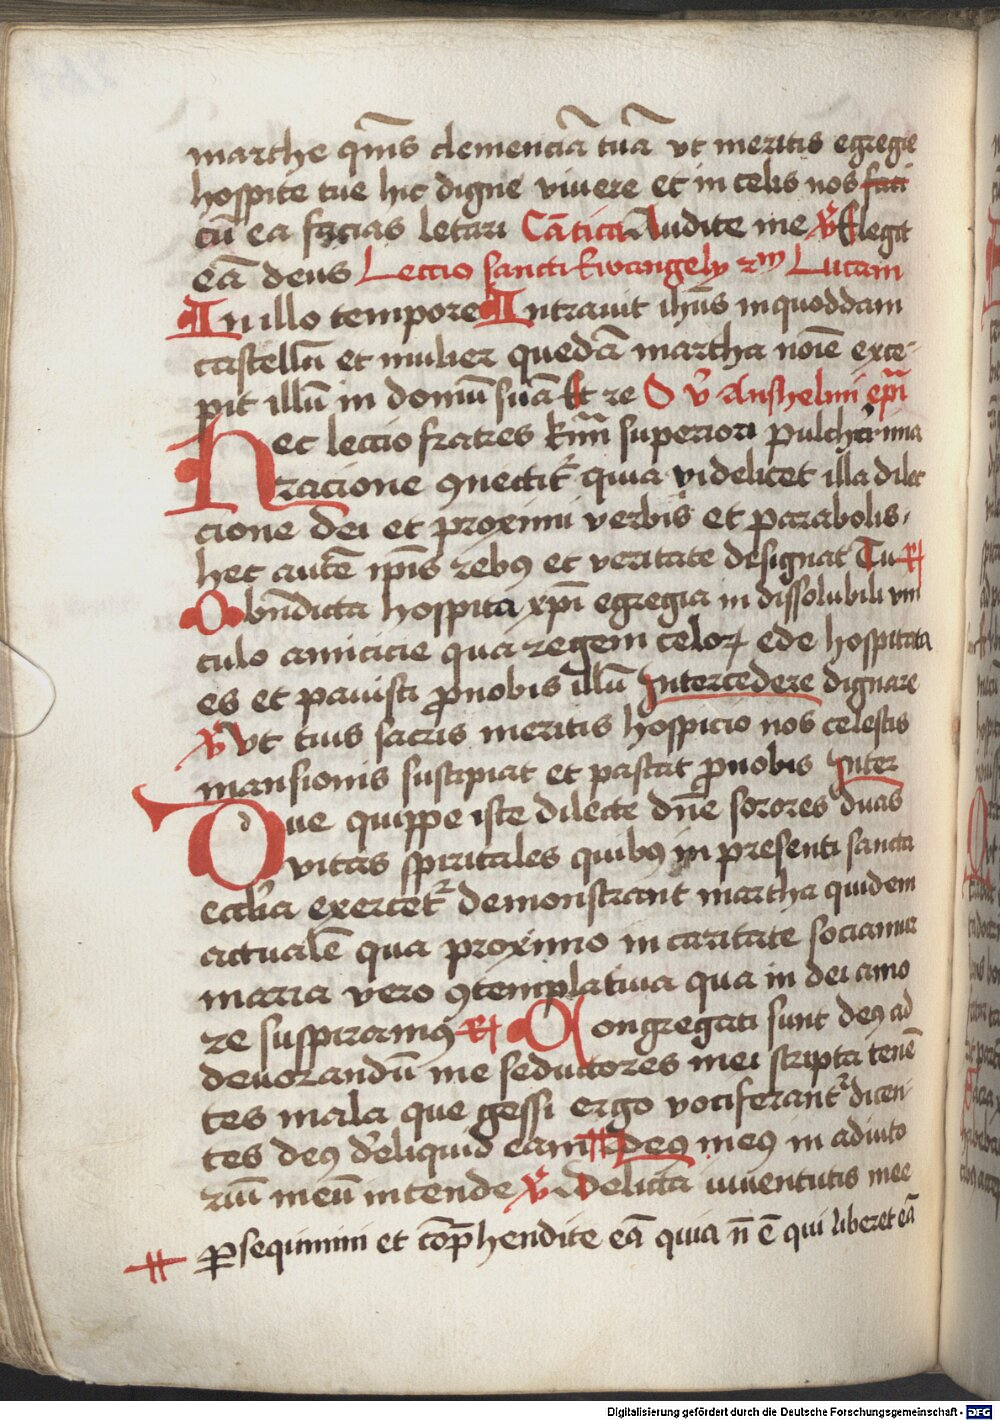 marthe qm̄s clemenciā tuā vt meritis egregie
hospite tue hic digne viuere et in celis nos faci
cū ea facias letari Cātica Audite me v̄ Elegit
eā deus Leccio sancti Ewangely Lucam
In illo tempore Intrauit ihūs in quoddam
castellū et mulier quedā martha noīe exce-
pit illū in domū suā Et re S v̄ Anshelmi ep̄i
Hec leccio fratres superiori pulcherrima
racione ꝯnectit᷑ quia videlicet illa dilec
cione dei et proximi verbis et parabolis
hec autē ip̄is rebꝰ et veritate designat Tu R
O bn̄dicta hospita xp̄i egregia in dissolubili vin
culo amicicie qua regem celoꝝ ede hospitata
es et pauisti ꝓ nobis illū Intercedere dignare
v̄ Vt tuis sacris meritis hospicio nos celestis
mansionis suscipiat et pascat ꝓ nobis Inter
Due quippe iste dilecte dn̄e sorores duas
vitas spiritales quibꝰ in presenti sancta
eccl̄ia exercet᷑ demonstrant martha quidem
actualē qua proximo in caritate sociamur
maria vero ꝯtemplatiua qua in dei amo
re suspiramꝰ R Congregati sunt deꝰ ad
deuorandū me seductores mei scripta tenē
tes mala que gessi ergo vociferant᷑ dicen
tes deꝰ dēliquid eam Deꝰ meꝰ in adiuto
riū meū intende v̄ Delicta iuuentutis mee
ꝑsequimini et cōp̄hendite eā quia n̄ ē qui liberet eā
Digitalisierung gefördert durch die Deutsche Forschungsgemeinschaft - DFG